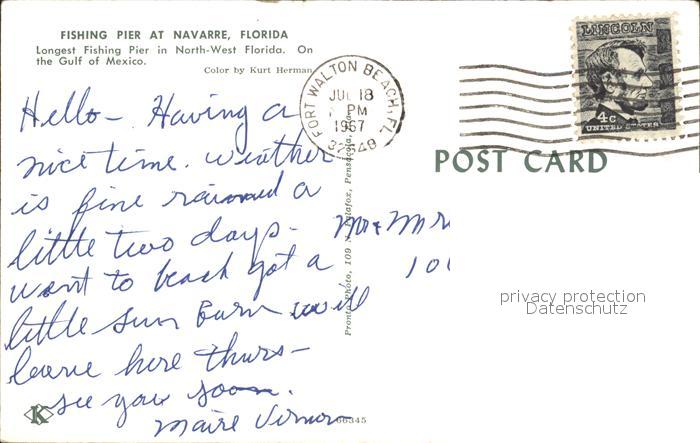 FISHING PIER AT NAVARRE, FLORIDA
Longest Fishing Pier in North-West Florida. On
the Gulf of Mexico.
Color by Kurt Herman
FORT WALTON BEACH, FL
JUL 18
PM
1967
LINCOLN
4c
UNITED STATES
POST CARD
Hello - Having a
nice time. weather
is fine rained a
little two days -
went to beach got a
little sun burn will
leave here thurs -
see you soon.
Maire
Mr & Mr
10
Photo, 109 N. Palafox, Pensacola,
privacy protection
Datenschutz
K
66345